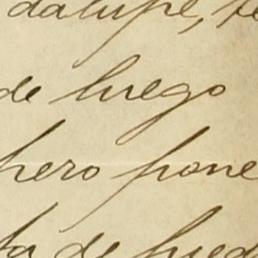 dalupe, te
de luego
pero pone
ta de pued